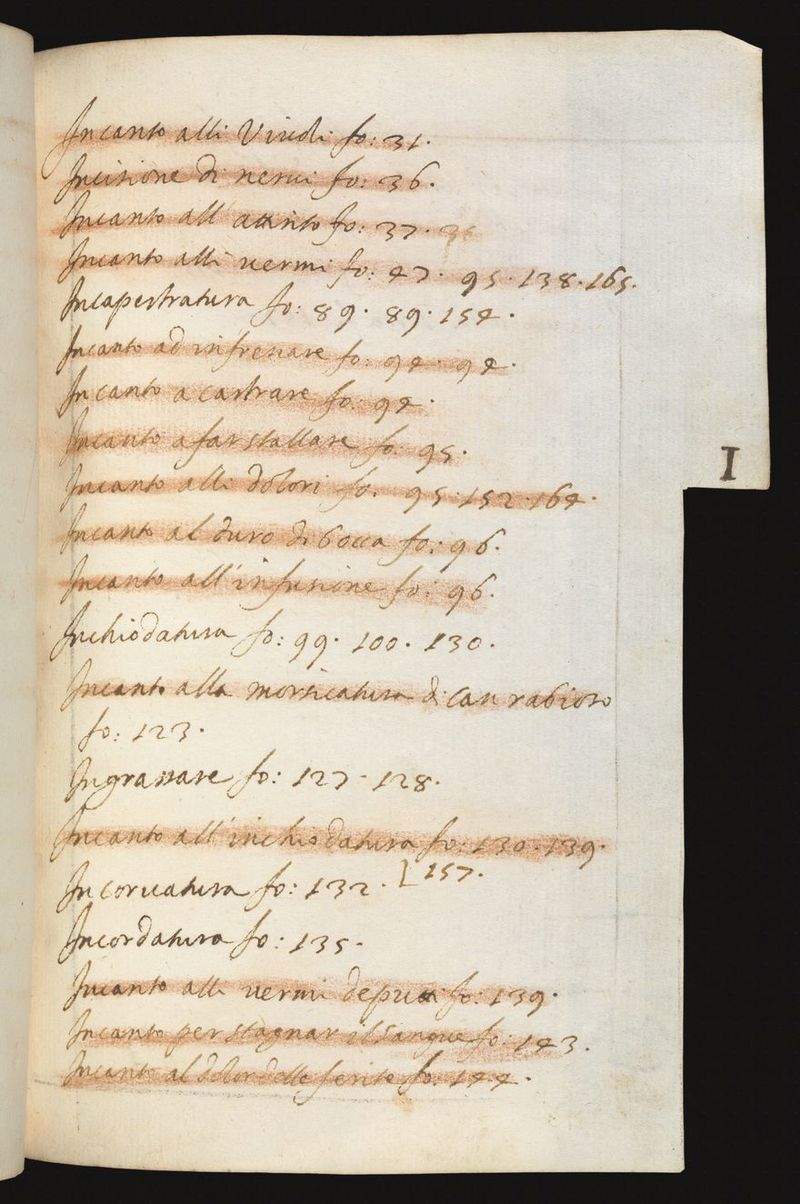 Incanto alli Viuoli fo: 31.
Incisione di nerui fo: 36.
Incanto all' attinto fo: 37.
Incanto alli vermi fo: 47. 95. 138. 165.
Incapestratura fo: 89. 89. 154.
Incanto ad infrenare fo: 94. 94.
Incanto a castrare fo: 94.
Incanto a far stallare fo: 95.
Incanto alli dolori fo. 95. 152. 164.
Incanto al duro di bocca fo: 96.
Incanto all'infusione fo: 96.
I
Inchiodatura fo: 99. 100. 130.
Incanto alla morsicatura di can rabioso
fo: 123.
Ingrassare fo: 127. 128.
Incanto all'inchiodatura fo: 130. 139.
157.
Incoruatura fo: 132.
Incordatura fo: 135.
Incanto alli vermi de fo: 139.
Incanto per stagnar il sangue fo: 143.
Incanto al dolor delle ferite fo: 144.